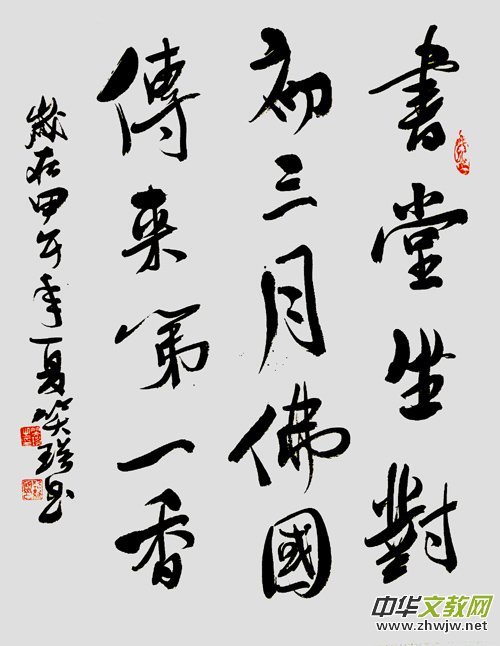 書堂坐對
初三月佛國
傳来第一香
歲在甲午年夏笑瑢书
中华文教网
www.zhwjw.net